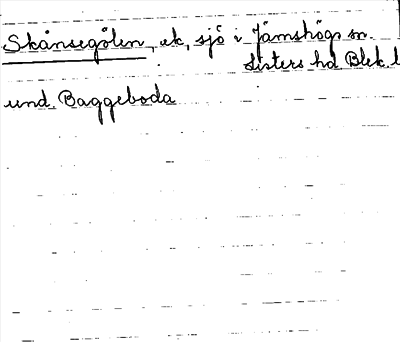 Skånsegölen, ek, sjö i Jämshögs sn.
Listers hd Blek. l
und. Baggeboda